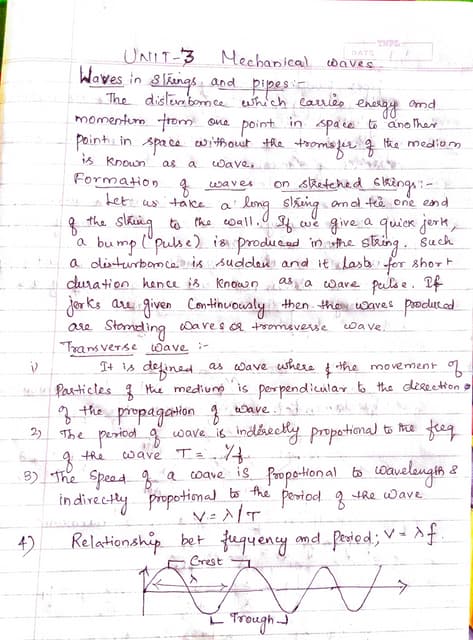 TNPL
DATE / /
UNIT-3 Mechanical waves
Waves in strings and pipes:-
The disturbance which carries energy and
momentum from one point in space to another
point in space without the transfer of the medium
is known as a wave.
Formation of waves on stretched strings:-
Let us take a long string and tie one end
of the string to the wall. If we give a quick jerk,
a bump (pulse) is produced in the string. Such
a disturbance is sudden and it lasts for short
duration hence is known as a wave pulse. If
jerks are given continuously then the waves produced
are standing waves or transverse wave.
Transverse wave :-
1) It is defined as wave where of the movement of
Particles of the medium is perpendicular to the direction
of the propagation of wave.
2) The period of wave is indirectly propotional to the freq
of the wave T = 1/f.
3) The speed of a wave is Propotional to wavelength &
indirectly propotional to the period of the wave
V = λ/T
4) Relationship bet fuquency and period; V = λf.
Crest
λ
Trough